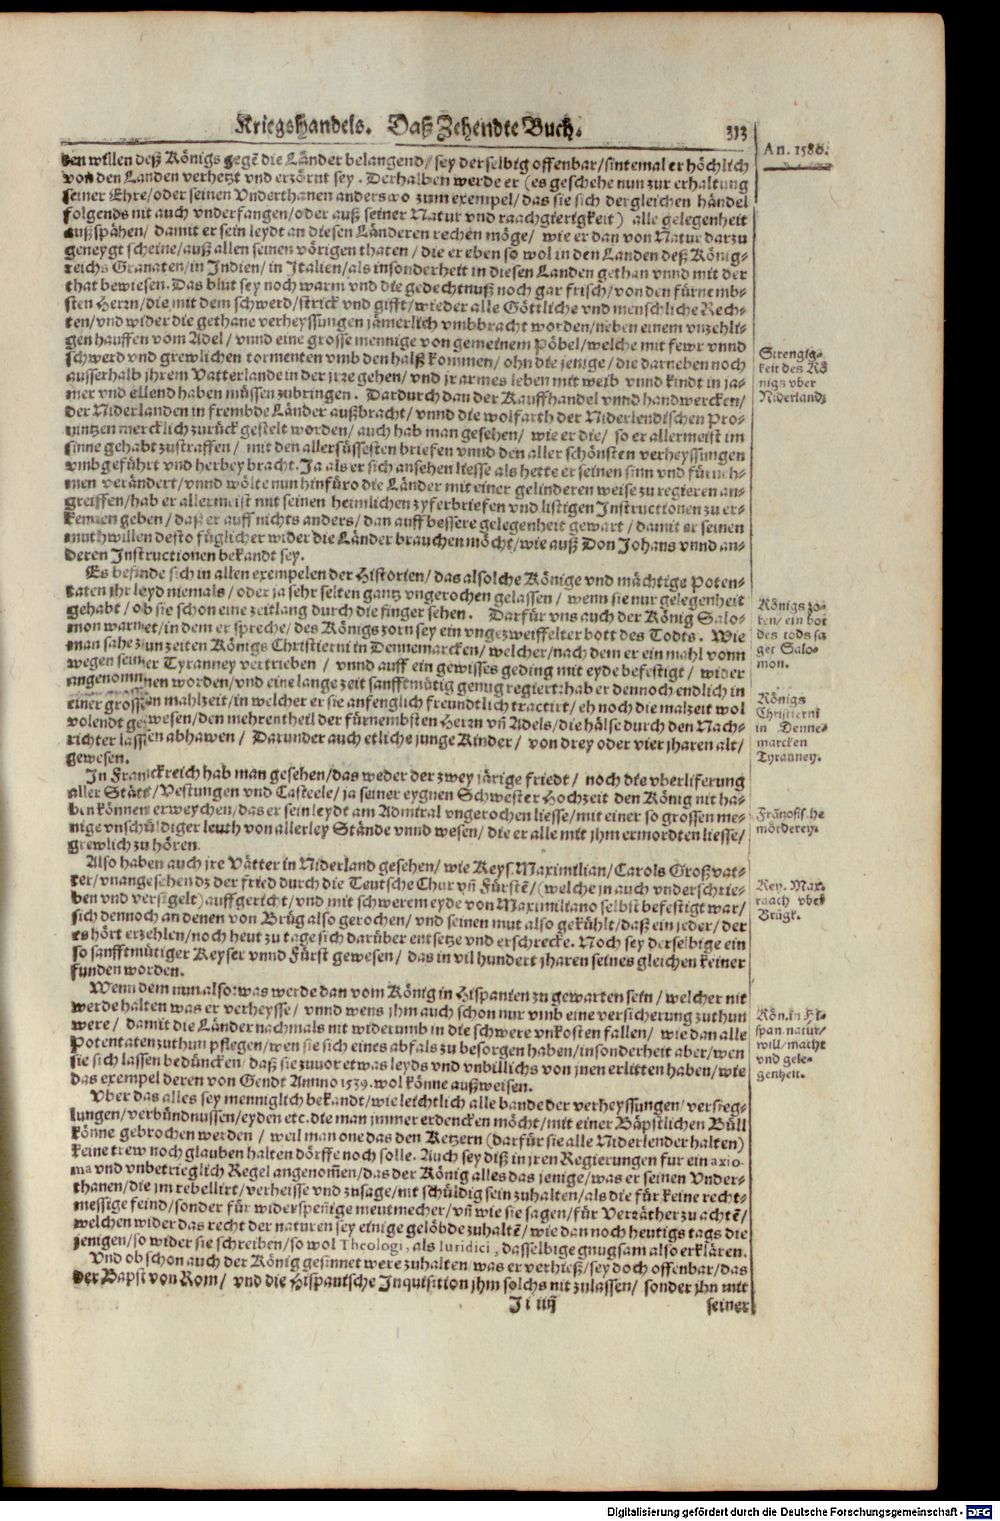 Kriegshandels. Daß Zehendte Buch. 313
An. 1580.
den willen deß Königs gegē die Länder belangend/ sey derselbig offenbar/sintemal er höchlich
von den Landen verhetzt vnd erzörnt sey. Derhalben werde er (es geschehe nun zur erhaltung
seiner Ehre/oder seinen Vnderthanen anderswo zum exempel/das sie sich dergleichen händel
folgends nit auch vnderfangen/oder auß seiner Natur vnd raachgierigkeit) alle gelegenheit
außspähen/ damit er sein leydt an diesen Länderen rechen möge/ wie er dan von Natur darzu
geneygt scheine/auß allen seinen vörigen thaten/ die er eben so wol in den Landen deß König-
reichs Granaten/in Indien/in Italien/als insonderheit in diesen Landen gethan vnnd mit der
that bewiesen. Das blut sey noch warm vnd die gedechtnuß noch gar frisch/von den fürnemb-
sten Herrn/die mit dem schwerd/strick vnd gifft/wieder alle Göttliche vnd menschliche Rech-
ten/vnd wider die gethane verheyssungen jämerlich vmbbracht worden/neben einem vnzehli-
gen hauffen vom Adel/ vnnd eine grosse mennige von gemeinem Pöbel/welche mit fewr vnnd
schwerd vnd grewlichen tormenten vmb den halß kommen/ ohn die jenige/die darneben noch
ausserhalb jhrem Vatterlande in der jrre gehen/ vnd jr armes leben mit weib vnnd kindt in ja-
mer vnd ellend haben müssen zubringen. Dardurch dan der Kauffhandel vnnd handwercken/
der Niderlanden in frembde Länder außbracht/ vnnd die wolfarth der Niderlendischen Pro-
vintzen mercklich zurück gestelt worden/auch hab man gesehen/ wie er die/ so er allermeist im
sinne gehabt zustraffen/ mit den allersüssesten briefen vnnd den aller schönsten verheyssungen
vmbgeführt vnd herbey bracht. Ja als er sich ansehen liesse als hette er seinen sinn vnd fürneh-
men verändert/vnnd wölte nun hinfüro die Länder mit einer gelinderen weise zu regieren an-
greiffen/hab er allermeist mit seinen heimlichen zyferbriefen vnd listigen Instructionen zu er-
kennen geben/ daß er auff nichts anders/ dan auff bessere gelegenheit gewart/ damit er seinen
muthwillen desto füglicher wider die Länder brauchen möcht/wie auß Don Johans vnnd an-
deren Instructionen bekandt sey.
Es befinde sich in allen exempelen der Historien/ das alsolche Könige vnd mächtige Poten-
taten jhr leyd niemals/ oder ja sehr selten gantz vngerochen gelassen/ wenn sie nur gelegenheit
gehabt/ ob sie schon eine zeitlang durch die finger sehen. Darfür vns auch der König Salo-
mon warnet/in dem er spreche/des Königs zorn sey ein vngezweiffelter bott des Todts. Wie
man sahe zun zeiten Königs Christierni in Dennemarcken/ welcher/nach dem er ein mahl vonn
wegen seiner Tyranney vertrieben/ vnnd auff ein gewisses geding mit eyde befestigt/ wider
angenommen worden/vnd eine lange zeit sanfftmütig genug regiert: hab er dennoch endlich in
einer grossen mahlzeit/in welcher er sie anfenglich freundtlich tractirt/ eh noch die malzeit wol
volendt gewesen/den mehrentheil der fürnembsten Herrn vñ Adels/die hälse durch den Nach-
richter lassen abhawen/ Darunder auch etliche junge Kinder/ von drey oder vier jharen alt/
gewesen.
In Franckreich hab man gesehen/das weder der zwey järige friedt/ noch die vberliferung
aller Stätt/Vestungen vnd Casteele/ ja seiner eygnen Schwester Hochzeit den König nit ha-
ben können erweychen/das er sein leydt am Admiral vngerochen liesse/mit einer so grossen me-
nige vnschüldiger leuth von allerley Stände vnnd wesen/ die er alle mit jhm ermordten liesse/
grewlich zu hören.
Also haben auch jre Vätter in Niderland gesehen/ wie Keys. Maximilian/Carols Großvat-
ter/vnangesehen dz der fried durch die Teutsche Chur vñ Fürstē/(welche jn auch vnderschrie-
ben vnd versigelt) auffgericht/vnd mit schwerem eyde von Maximiliano selbst befestigt war/
sich dennoch an denen von Brüg also gerochen/ vnd seinen mut also gekühlt/daß ein jeder/der
es hört erzehlen/noch heut zu tage sich darüber entsetze vnd erschrecke. Noch sey derselbige ein
so sanfftmütiger Keyser vnnd Fürst gewesen/ das in vil hundert jharen seines gleichen keiner
funden worden.
Wenn dem nun also: was werde dan vom König in Hispanien zu gewarten sein/ welcher nit
werde halten was er verheysse/ vnnd wens jhm auch schon nur vmb eine versicherung zuthun
were/ damit die Länder nachmals nit widerumb in die schwere vnkosten fallen/ wie dan alle
Potentaten zuthun pflegen/wen sie sich eines abfals zu besorgen haben/insonderheit aber/wen
sie sich lassen bedüncken/ daß sie zuuor etwas leyds vnd vnbillichs von jnen erlitten haben/wie
das exempel deren von Gendt Annno 1539. wol könne außweisen.
Vber das alles sey menniglich bekandt/wie leichtlich alle bande der verheyssungen/versieg-
lungen/verbündnussen/eyden etc. die man jmmer erdencken möcht/mit einer Bäpstlichen Büll
könne gebrochen werden/ weil man one das den Ketzern (darfür sie alle Niderlender halten)
keine trew noch glauben halten dörffe noch solle. Auch sey diß in jren Regierungen für ein axio-
ma vnd vnbetrieglich Regel angenom̄en/das der König alles das jenige/was er seinen Vnder-
thanen/die jm rebellirt/verheisse vnd zusage/nit schüldig sein zuhalten/als die für keine recht-
messige feind/sonder für widerspeñige meutmecher/vñ wie sie sagen/für Verräther zu achtē/
welchen wider das recht der naturen sey einige gelöbde zuhaltē/wie dan noch heutigs tags die
jenigen/so wider sie schreiben/so wol Theologi, als Iuridici, dasselbige gnugsam also erklären.
Vnd ob schon auch der König gesinnet were zuhalten was er verhieß/sey doch offenbar/das
der Bapst von Rom/ vnd die Hispanische Inquisition jhm solchs nit zulassen/ sonder jhn mit
Ji iiij seiner
Strengig-
keit des Kö
nigs vber
Niderland.
Königs zo-
ren/ ein bot
des tods sa
get Salo-
mon.
Königs
Christierni
in Denne-
marcken
Tyranney.
Frāzösische
mörderey.
Key. Max.
raach vber
Brügk.
Kön. in Hi-
span. natur/
will/ macht
vnd gele-
genheit.
Digitalisierung gefördert durch die Deutsche Forschungsgemeinschaft - DFG